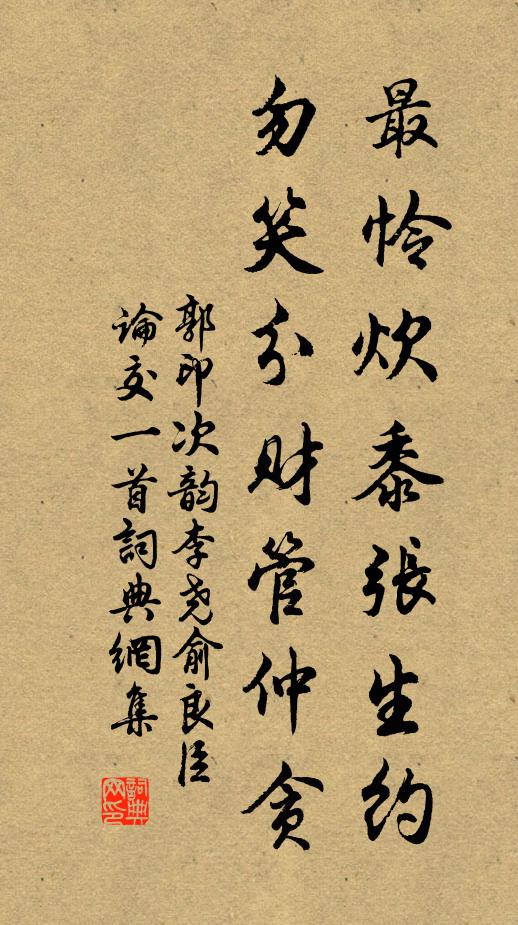 最怜炊黍張生约
勿笑分财管仲贪
郭印次韵李尧俞良臣
論交一首詞典網集
詞典網印